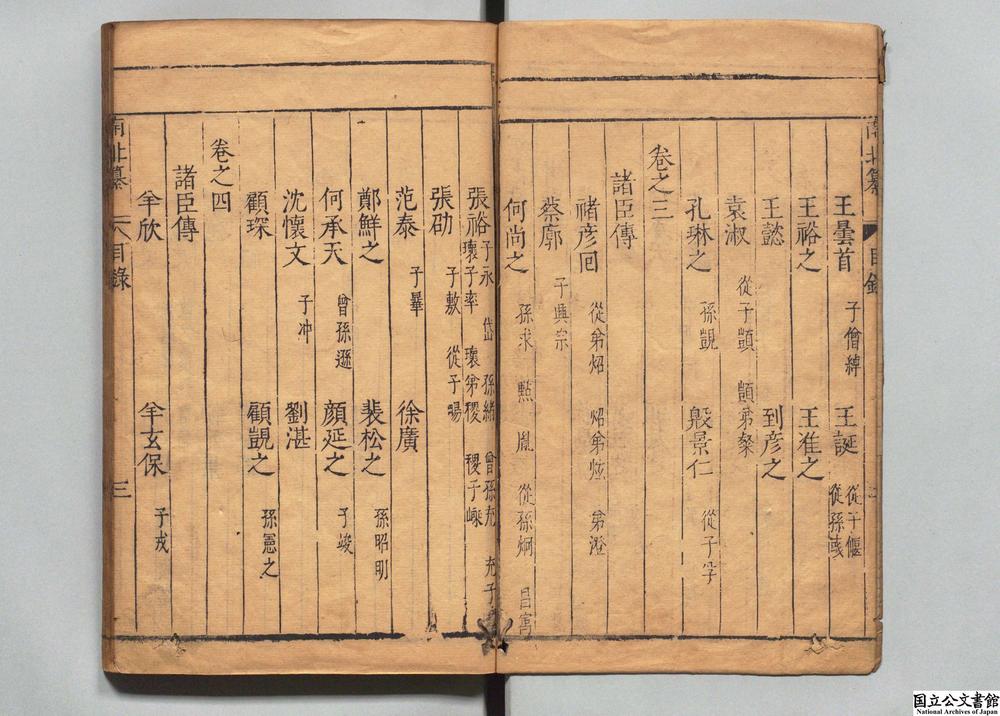 王曇首 子僧綽 王誕 從子偃 從孫彧
王裕之 王准之
王懿 到彥之
袁淑 從子顗 顗弟粲
孔琳之 孫覬 殷景仁 從子孚
卷之三
諸臣傳
褚彥回 從弟炤 炤弟炫 弟澄
蔡廓 子興宗
何尚之 孫求 點 胤 從孫炯 昌㝢
張裕 子永 岱 孫緒 曾孫充 充子 瓌子率 瓌弟稷 稷子嵊
張劭 子敷 從子暢
范泰 子曅 徐廣
鄭鮮之 裴松之 孫昭明
何承天 曾孫遜 顏延之 子竣
沈懷文 子冲 劉湛
顧琛 顧覬之 孫憲之
卷之四
諸臣傳
羊欣 羊玄保 子戎
南北纂 目錄 三
南北纂 目錄
国立公文書館
National Archives of Japan